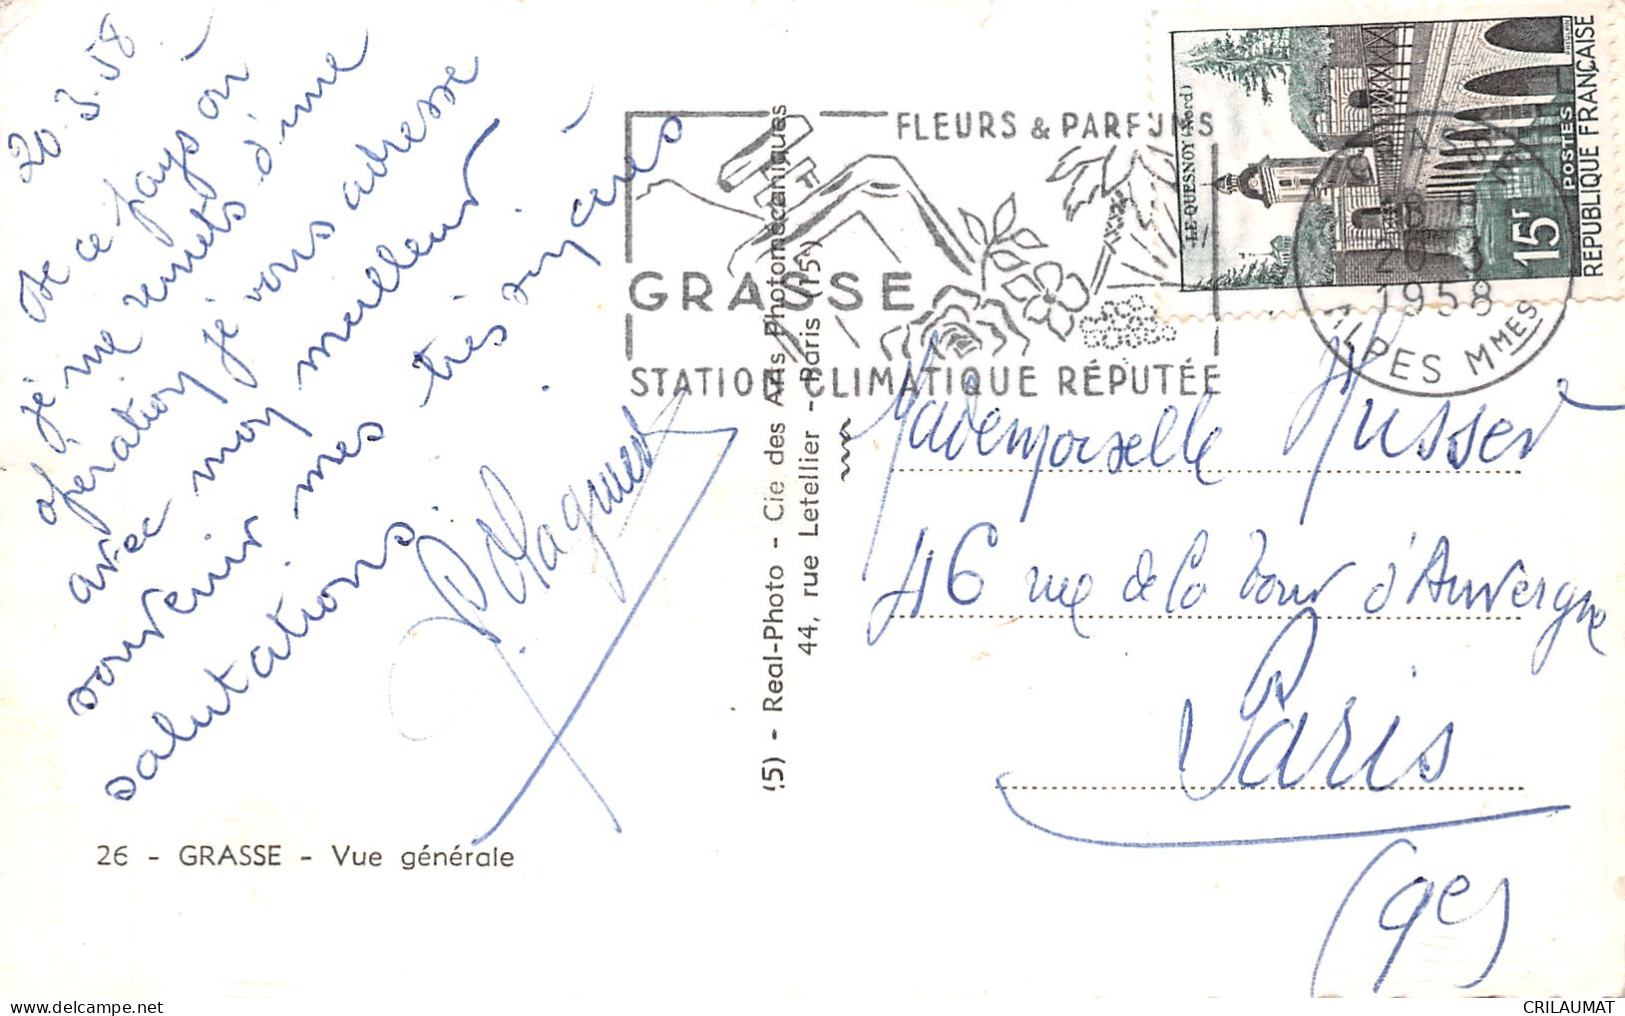 20.3.58
De ce pays où
je me remets d'une
opération, je vous adresse
avec mon meilleur
souvenir mes très sincères
salutations.
26 - GRASSE - Vue générale
(5) - Real-Photo - Cie des Arts Photomécaniques
44, rue Letellier - Paris (15e)
FLEURS & PARFUMS
GRASSE
STATION CLIMATIQUE RÉPUTÉE
LE QUESNOY (Nord)
15F
POSTES
REPUBLIQUE FRANÇAISE
GRASSE
20 - 3
1958
ALPES MMES
Mademoiselle Musser
46 rue de la Tour d'Auvergne
Paris
(9e)
CRILAUMAT